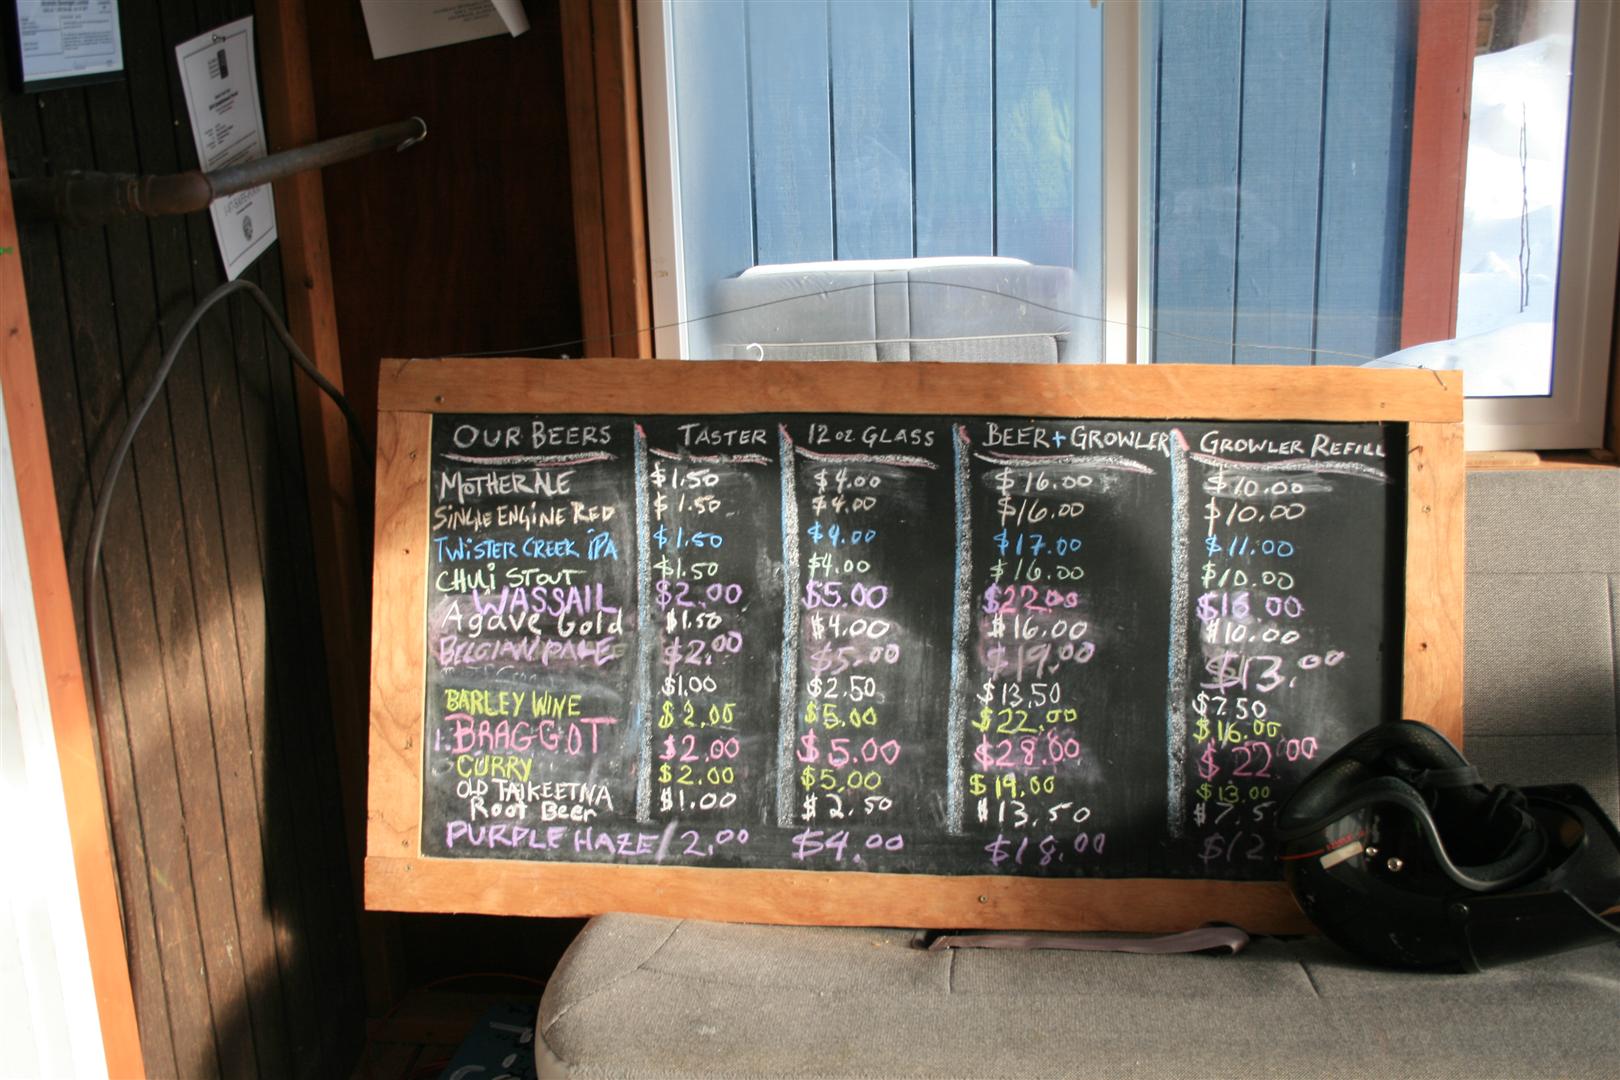 OUR BEERS TASTER 12 oz GLASS BEER + GROWLER GROWLER REFILL
MOTHER ALE $1.50 $4.00 $16.00 $10.00
SINGLE ENGINE RED $1.50 $4.00 $16.00 $10.00
TWISTER CREEK IPA $1.50 $4.00 $17.00 $11.00
CHULI STOUT $1.50 $4.00 $16.00 $10.00
WASSAIL $2.00 $5.00 $22.00 $16.00
Agave Gold $1.50 $4.00 $16.00 $10.00
BELGIAN PALE $2.00 $5.00 $19.00 $13.00
$1.00 $2.50 $13.50 $7.50
BARLEY WINE $2.00 $5.00 $22.00 $16.00
BRAGGOT $2.00 $5.00 $28.00 $22.00
CURRY $2.00 $5.00 $19.00 $13.00
OLD TALKEETNA
Root Beer $1.00 $2.50 $13.50 $7.5
PURPLE HAZE / 2.00 $4.00 $18.00 $12.